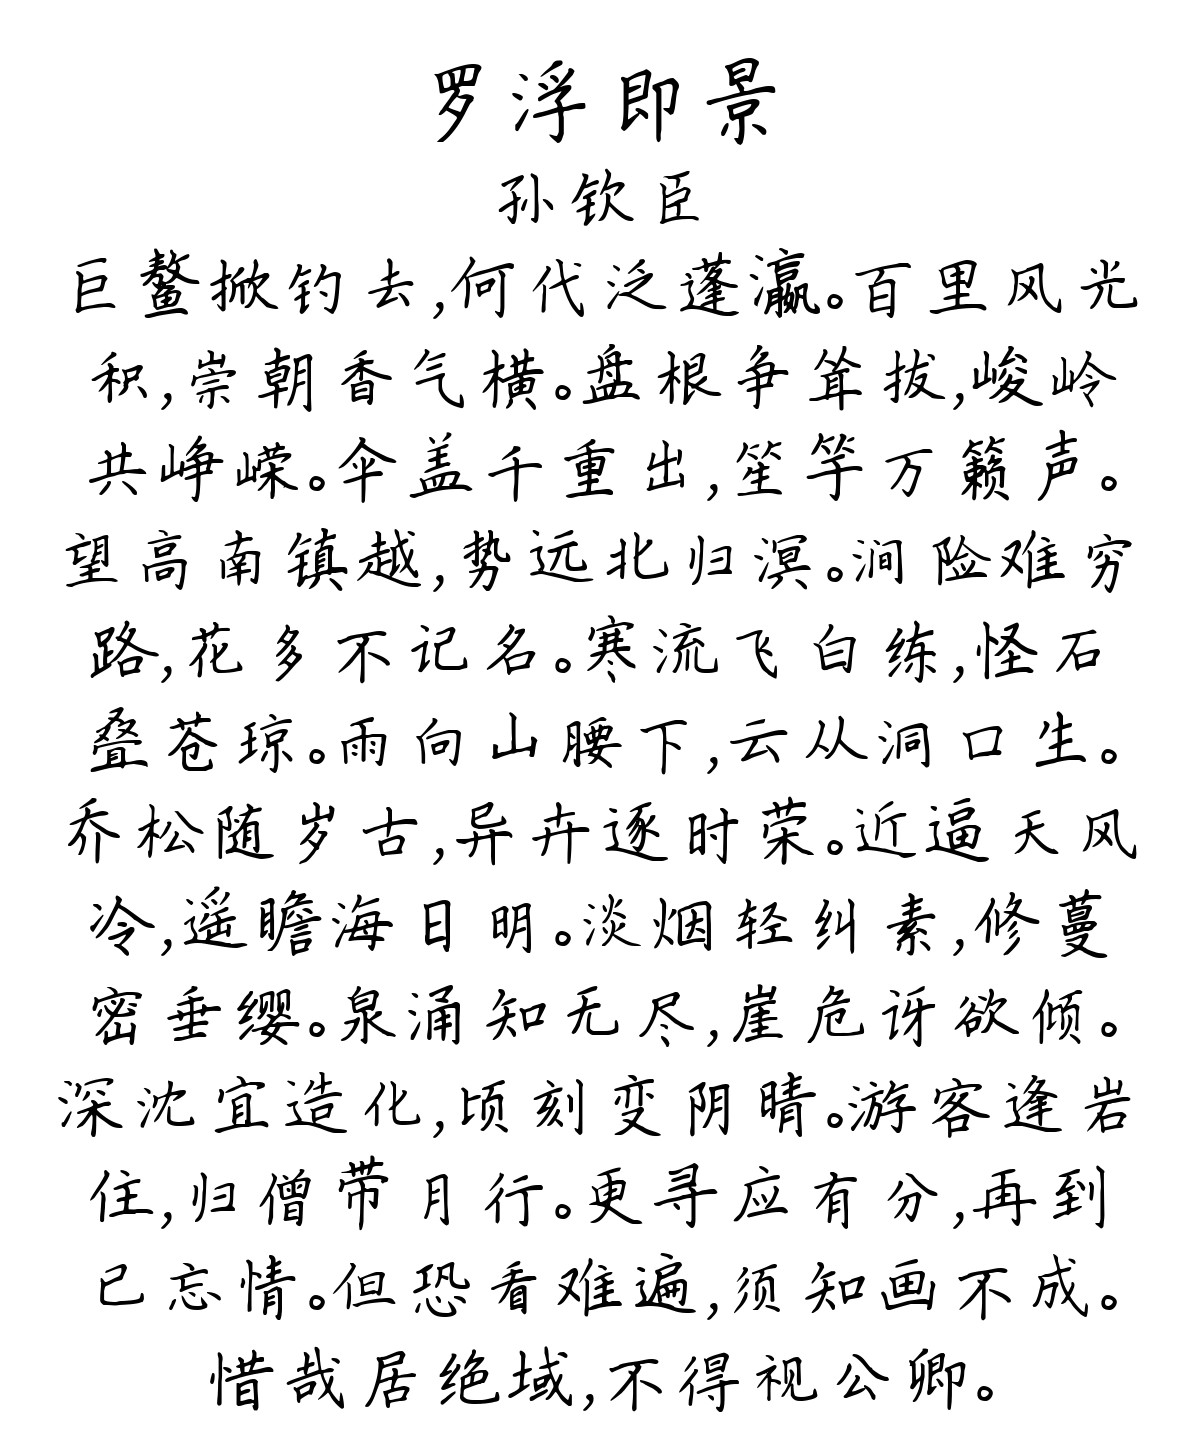 罗浮即景
孙钦臣
巨鳌掀钓去,何代泛蓬瀛。百里风光
积,崇朝香气横。盘根争耸拔,峻岭
共峥嵘。伞盖千重出,笙竽万籁声。
望高南镇越,势远北归溟。涧险难穷
路,花多不记名。寒流飞白练,怪石
叠苍琼。雨向山腰下,云从洞口生。
乔松随岁古,异卉逐时荣。近逼天风
冷,遥瞻海日明。淡烟轻纠素,修蔓
密垂缨。泉涌知无尽,崖危讶欲倾。
深沈宜造化,顷刻变阴晴。游客逢岩
住,归僧带月行。更寻应有分,再到
已忘情。但恐看难遍,须知画不成。
惜哉居绝域,不得视公卿。